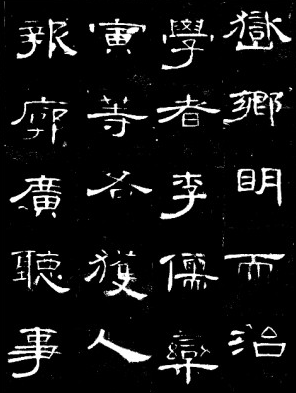 嶽鄉明而治
學者李儒欒
寅等各獲人
報廓廣聽事